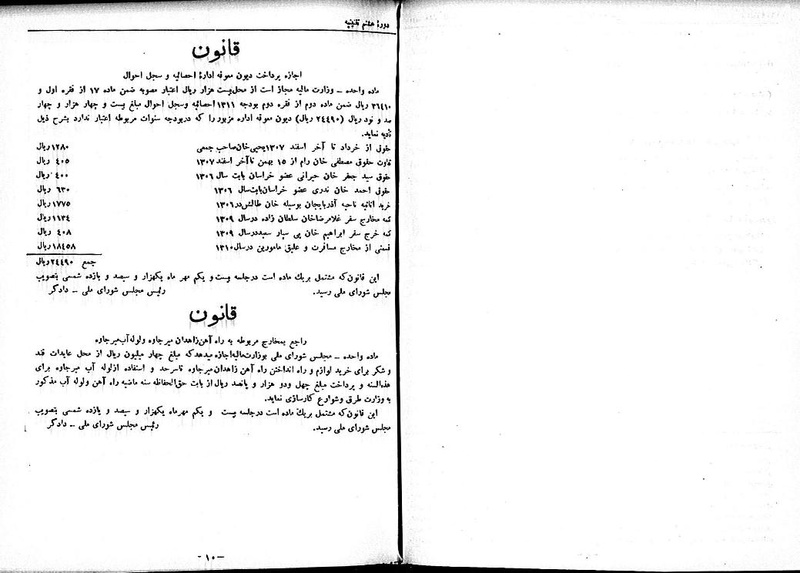 دورهٔ هشتم تقنینیه
قانون
اجازه پرداخت دیون معوقه ادارهٔ احصائیه و سجل احوال
ماده واحده ـ وزارت مالیه مجاز است از محل بیست هزار ریال اعتبار مصوبه ضمن ماده ۱۷ از فقره اول و
۳۱۴۱۰ ریال ضمن ماده دوم از فقره دوم بودجه ۱۳۱۱ احصائیه وسجل احوال مبلغ بیست و چهار هزار و چهار
صد و نود ریال (۲۴۴۹۰ ریال) دیون معوقه اداره مزبور را که دربودجه سنوات مربوطه اعتبار ندارد بشرح ذیل
تأدیه نماید.
حقوق از خرداد تا آخر اسفند ۱۳۰۷ یحیی خان صاحب جمعی ۱۲۸۰ ریال
تفاوت حقوق مصطفی خان رام از ۱۵ بهمن تا آخر اسفند ۱۳۰۷ ۴۰۵ ریال
حقوق سید جعفر خان حیرانی عضو خراسان بابت سال ۱۳۰۶ ۴۰۰ ریال
حقوق احمد خان ندری عضو خراسان بابت سال ۱۳۰۶ ۶۳۰ ریال
خرید اثاثیه ناحیه آذربایجان بوسیله خان طالش در ۱۳۰۶ ۱۷۷۵ ریال
تتمه مخارج سفر غلامرضاخان سلطان زاده درسال ۱۳۰۹ ۱۱۳۴ ریال
تتمه خرج سفر ابراهیم خان پی سپار سعید درسال ۱۳۰۹ ۴۰۸ ریال
قسمتی از مخارج مسافرت و علیق مامورین درسال ۱۳۱۰ ۱۸۴۵۸ ریال
جمع ۲۴۴۹۰ ریال
این قانون که مشتمل بریك ماده است درجلسه بیست و یکم مهر ماه یکهزار و سیصد و یازده شمسی بتصویب
مجلس شورای ملی رسید. رئیس مجلس شورای ملی ـ دادگر
قانون
راجع بمخارج مربوطه به راه آهن زاهدان میرجاوه ولوله آب میرجاوه
ماده واحده ـ مجلس شورای ملی بوزارت مالیه اجازه میدهد که مبلغ چهار میلیون ریال از محل عایدات قند
و شکر برای خرید لوازم و راه انداختن راه آهن زاهدان میرجاوه تاسرحد و استفاده ازلوله آب میرجاوه برای
هذه السنه و پرداخت مبلغ چهل ودو هزار و پانصد ریال از بابت حق الحفاظه سنه ماضیه راه آهن ولوله آب مذکور
به وزارت طرق وشوارع کارسازی نماید.
این قانون که مشتمل بریك ماده است درجلسه بیست و یکم مهرماه یکهزار و سیصد و یازده شمسی بتصویب
مجلس شورای ملی رسید. رئیس مجلس شورای ملی ـ دادگر
-۱۰-